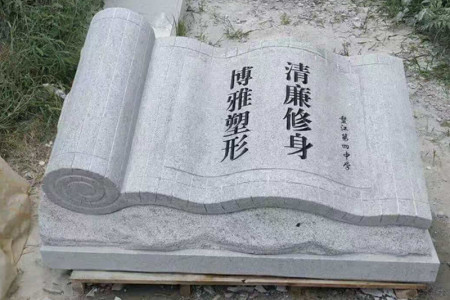 江第四中学
清廉修身
博雅塑形